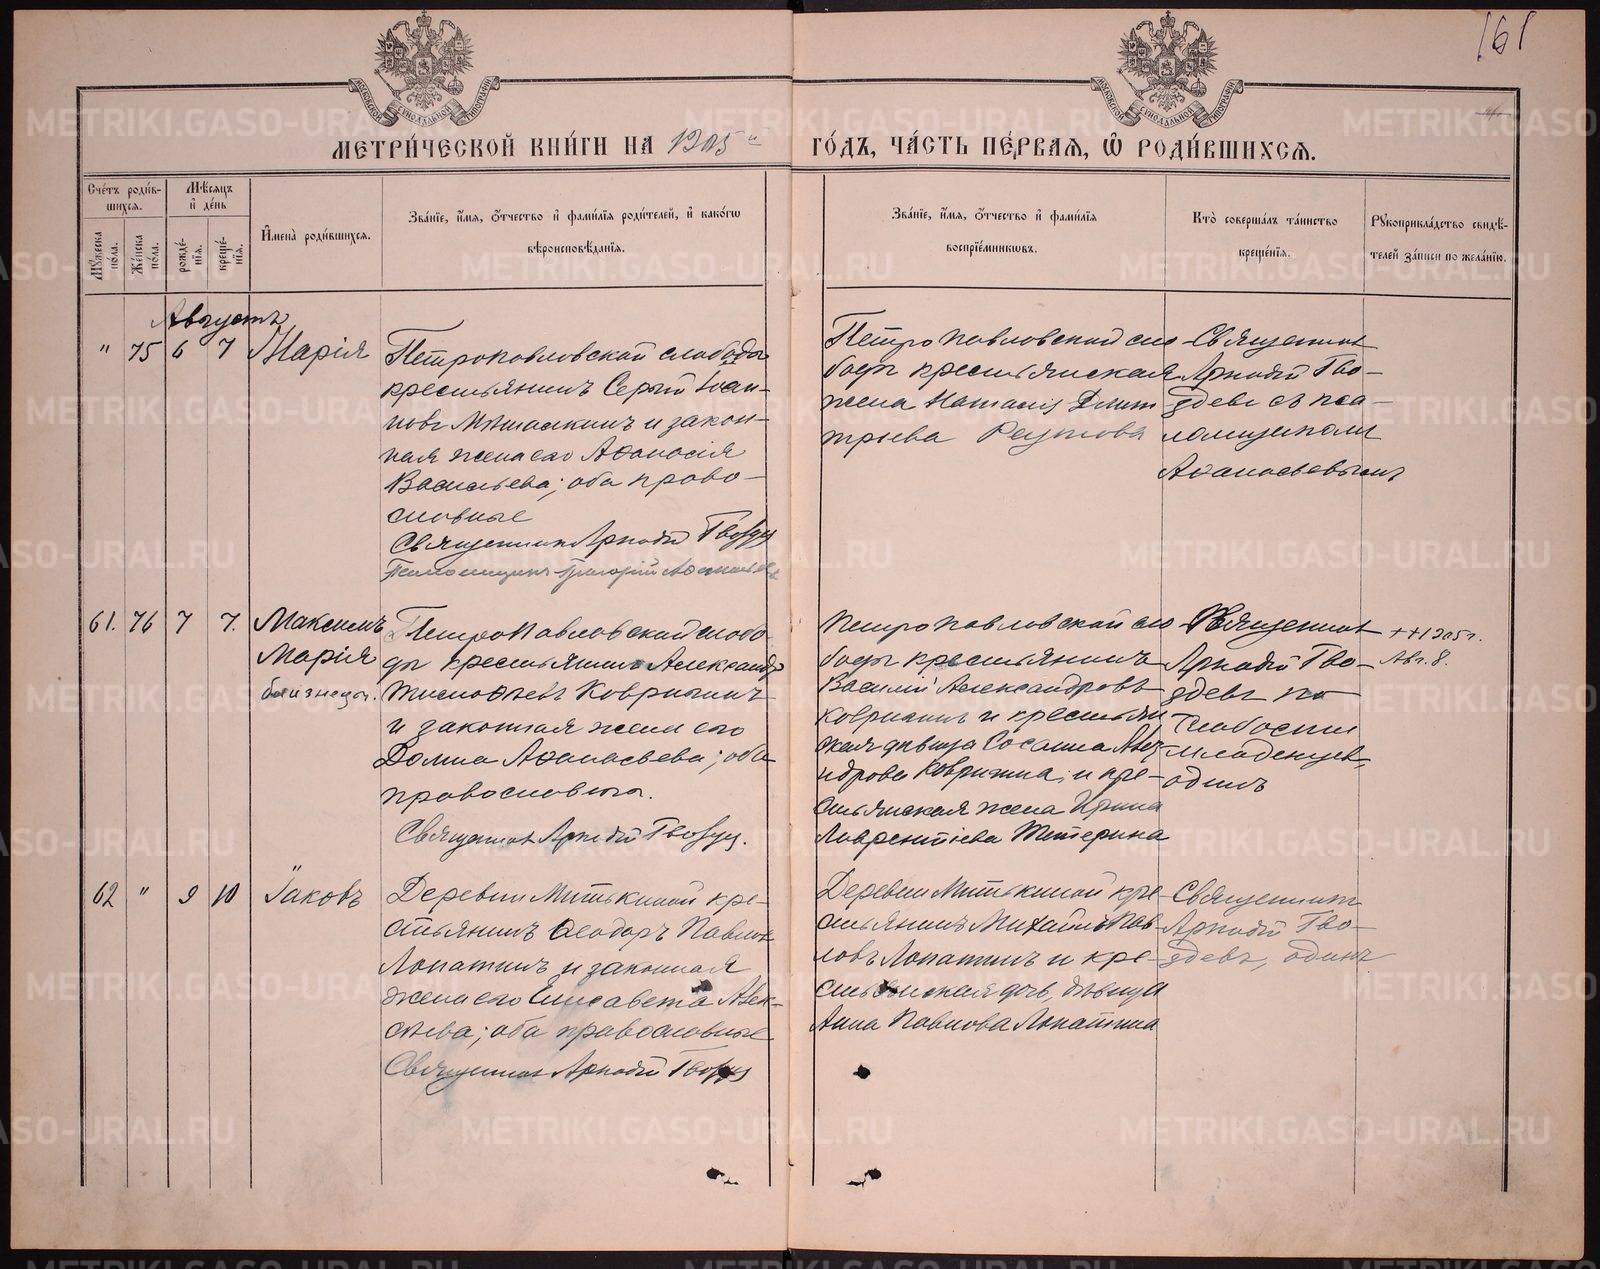 161
МОСКОВСКОЙ СѴНОДАЛЬНОЙ ТИПОГРАФІИ
МОСКОВСКОЙ СѴНОДАЛЬНОЙ ТИПОГРАФІИ
МЕТРИ́ЧЕСКОЙ КНИ́ГИ НА 1905 й
ГО́ДЪ, ЧА́СТЬ ПЕ́РВАЯ, Ѡ҆ РОДИ́ВШИХСѦ.
Сче́тъ роди́в-
шихсѧ.
Мѣ́сѧцъ
и҆ де́нь
И҆мена̀ роди́вшихсѧ.
Зва́нїе, и҆́мѧ, ѻ҆́тчество и҆ фами́лїѧ роди́телей, и҆ како́гѡ
вѣроисповѣ́данїѧ.
Мꙋ́жеска
по́ла.
Же́нска
по́ла.
рожде́-
нїѧ.
креще́-
нїѧ.
Зва́нїе, и҆́мѧ, ѻ҆́тчество и҆ фами́лїѧ
воспрїе́мникѡвъ.
Кто̀ соверша́лъ та́инство
креще́нїѧ.
Рꙋкоприкла́дство свидѣ́-
телей за́писи по жела́нїю.
Августъ
" 75 6 7 Марія
Петропавловской слободы
крестьянинъ Сергій Іоан-
новъ и закон-
ная жена его Аѳанасія
Васильева; оба право-
славные
Священник Аркадій Гвоздев
Псаломщик Григорій Аѳанасьев
Петропавловской сло-
боды крестьянская
жена Наталія Дмит
тріева Реутова
Священник
Аркадій Гво-
здевъ съ пса-
ломщиком
Аѳанасьевымъ
61. 76 7 7. Максимъ
Марія
близнецы.
Петропавловской слобо-
ды крестьянинъ Александр
Тимоѳеевъ Ковригинъ
и законная жена его
Домна Аѳанасьева; оба
православны.
Священник Аркадій Гвоздев.
Петропавловской сло
боды крестьянинъ
Василій Александровъ
Ковригинъ и крестьян
ская девица Сосанна Алек
ндрова Ковригина; и кре-
стьянская жена Ирина
Лаврентіева Тетерина
Священник
Аркадій Гво-
здевъ по
слабости
младенцев,
одинъ
++ 1905 г.
Авг. 8.
62 " 9 10 Іаковъ
Деревни Митькиной кре-
стьянинъ Ѳеодоръ Павлов
Лопатинъ и законная
жена его Елисавета Алек-
сѣева; оба православные
Священник Аркадій Гвоздев
Деревни Митькиной кре-
стьянинъ Михаилъ Пав-
ловъ Лопатинъ и кре-
стьянская дочь, девица
Анна Павлова Лопатина
Священник
Аркадій Гво-
здевъ, одинъ